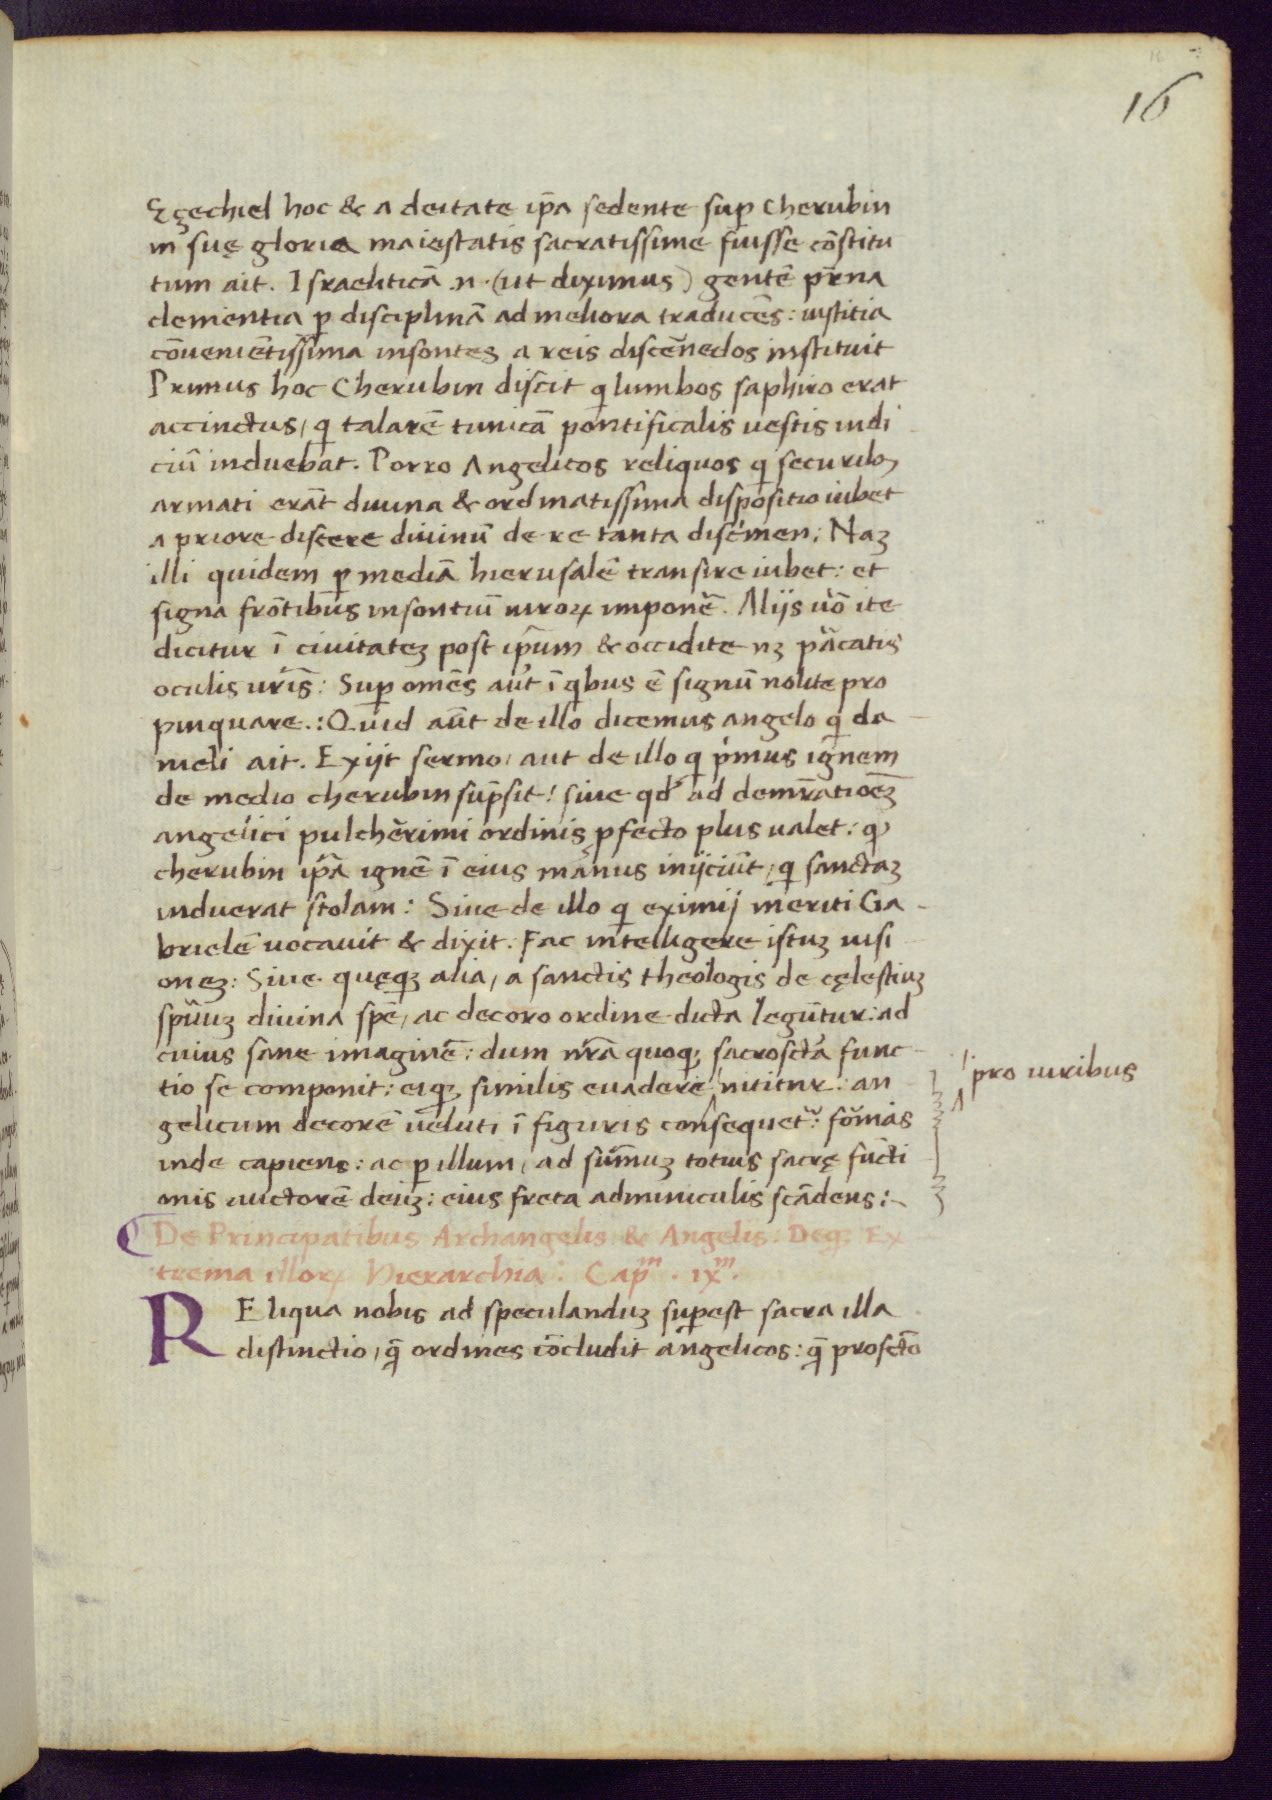 16
Eçechiel hoc & a deitate ip̄a sedente suꝑ Cherubin
in suę gloria maiestatis sacratissime fuisse cōstitu
tum ait. Israeliticā .n. (ut diximus) gentē pr̄na
clementia ꝑ disciplinā ad meliora traducēs: iustitia
cōuenietīssima insontes a reis discēnedos instituit
Primus hoc Cherubin discit q̄ lumbos saphiro erat
accinctus, q̄ talarē tunicā pontificalis uestis indi
ciū induebat. Porro Angelicos reliquos q̄ securibꝫ
armati erāt diuina & ordinatissima dispositio iubet
a priore discere diuinū de re tanta discͥmen; Naꝫ
illi quidem ꝑ mediā hierusalē transire iubet: et
signa frōtibus insontiū uiroꝝ imponē̄. Alijs uō ite
dicitur ī ciuitateꝫ post ip̄um & occidite nꝫ pācatis
oculis ur̄is: Suꝑ omēs aūt ī q̄bus ē signū nolite pro
pinquare.: Quid aūt de illo dicemus angelo q̄ da
nieli ait. Exijt sermo, aut de illo q̄ pͥmus ignem
de medio cherubin sūpsit! siue qd́ ad demr̄atioēꝫ
angelici pulchērimi ordinis ꝓfecto plus ualet: qꝫ
cherubin ip̄a ignē ī eius manus inijciūt, q̄ sanctaꝫ
induerat stolam: Siue de illo q̄ eximij meriti Ga
brielē uocauit & dixit. Fac intelligere istuꝫ uisi
oneꝫ: Siue quęqꝫ alia, a sanctis theologis de cęlestiuꝫ
sp̄uuꝫ diuina sp̄e, ac decoro ordine dicta legūtur: ad
cuius sane imaginē: dum nr̄a quoqꝫ sacroscta̅ func
tio se componit: eiqꝫ similis euadere nititur: an
gelicum decorē ueluti ī figuris consequetᷣ: fōmas
inde capiens: ac ꝑ illum, ad sūmuꝫ totius sacrę fūcti
onis auctorē deuꝫ: eius freta adminiculis scādens:
pro uiribus
De Principatibus Archangelis & Angelis. Deqꝫ Ex
trema illoꝝ Hierarchia: Capᵐ. ixᵐ.
REliqua nobis ad speculanduꝫ suꝑest sacra illa
distinctio, q̄ ordines cōcludit angelicos: q̄ profcto̅